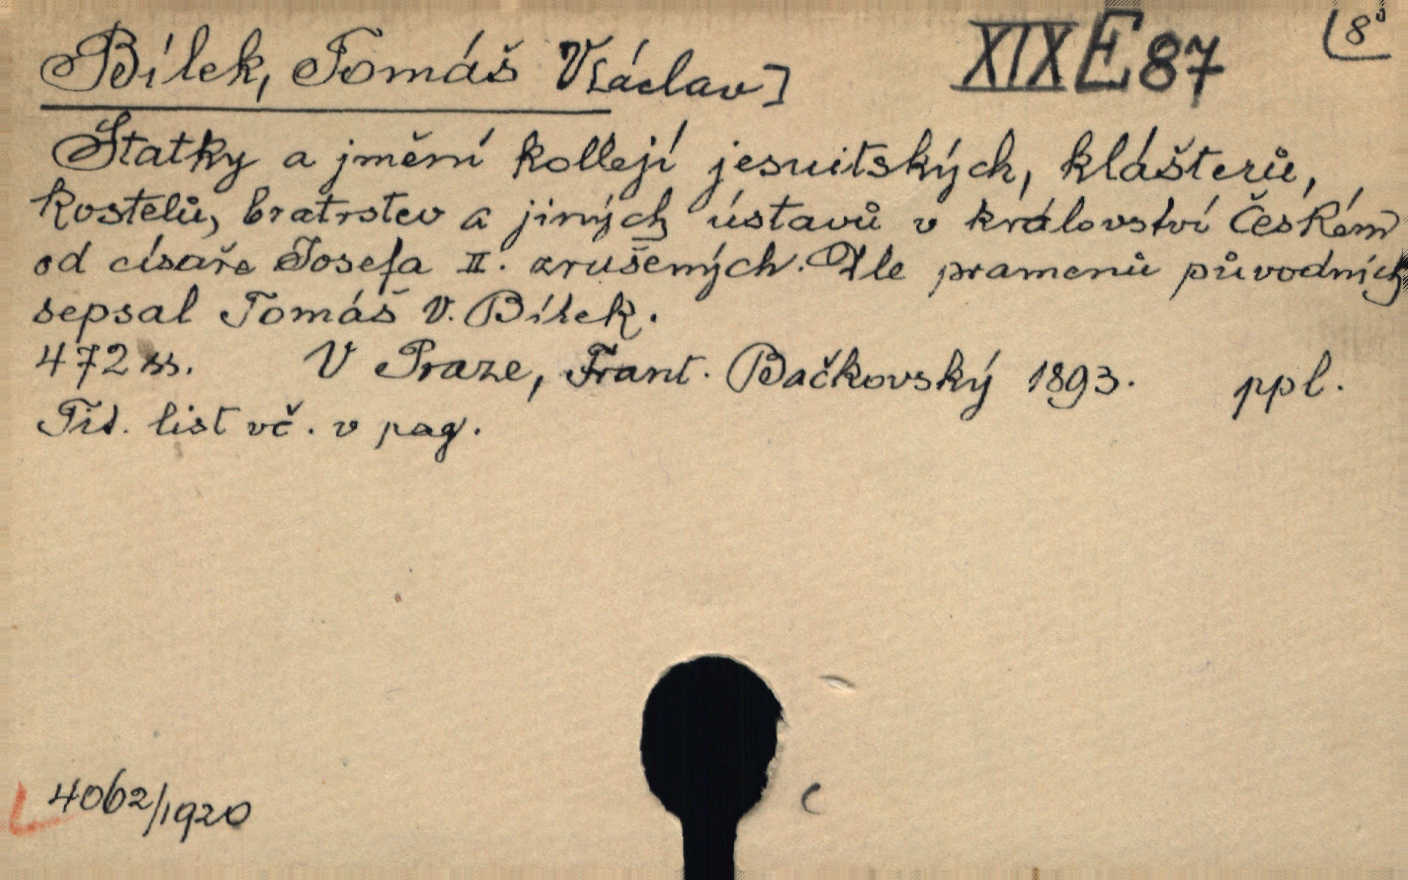 Bílek, Tomáš V[áclav] XIX E 87 8°
Statky a jmění kollejí jesuitských, klášterů,
kostelů, bratrstev a jiných ústavů v království Českém
od císaře Josefa II. zrušených. Dle pramenů původních
sepsal Tomáš V. Bílek.
472 ss. V Praze, Frant. Bačkovský 1893. ppl.
Tit. list vč. v pag.
4062/1920